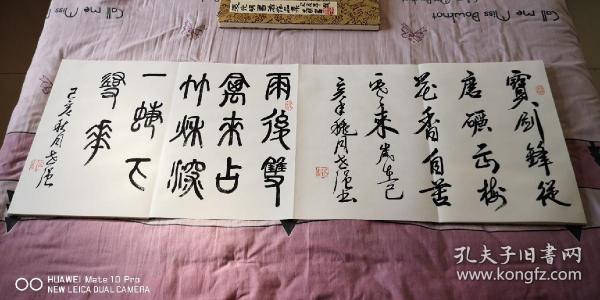 書法作品集
Call me Miss
寶劍鋒從
磨礪出梅
花香自苦
寒來 歲在己
亥年秋月
雨後雙
禽來占
竹秋深
一蜨下
尋花
己亥秋月
HUAWEI Mate 10 Pro
NEW LEICA DUAL CAMERA
孔夫子旧書网
www.kongfz.com